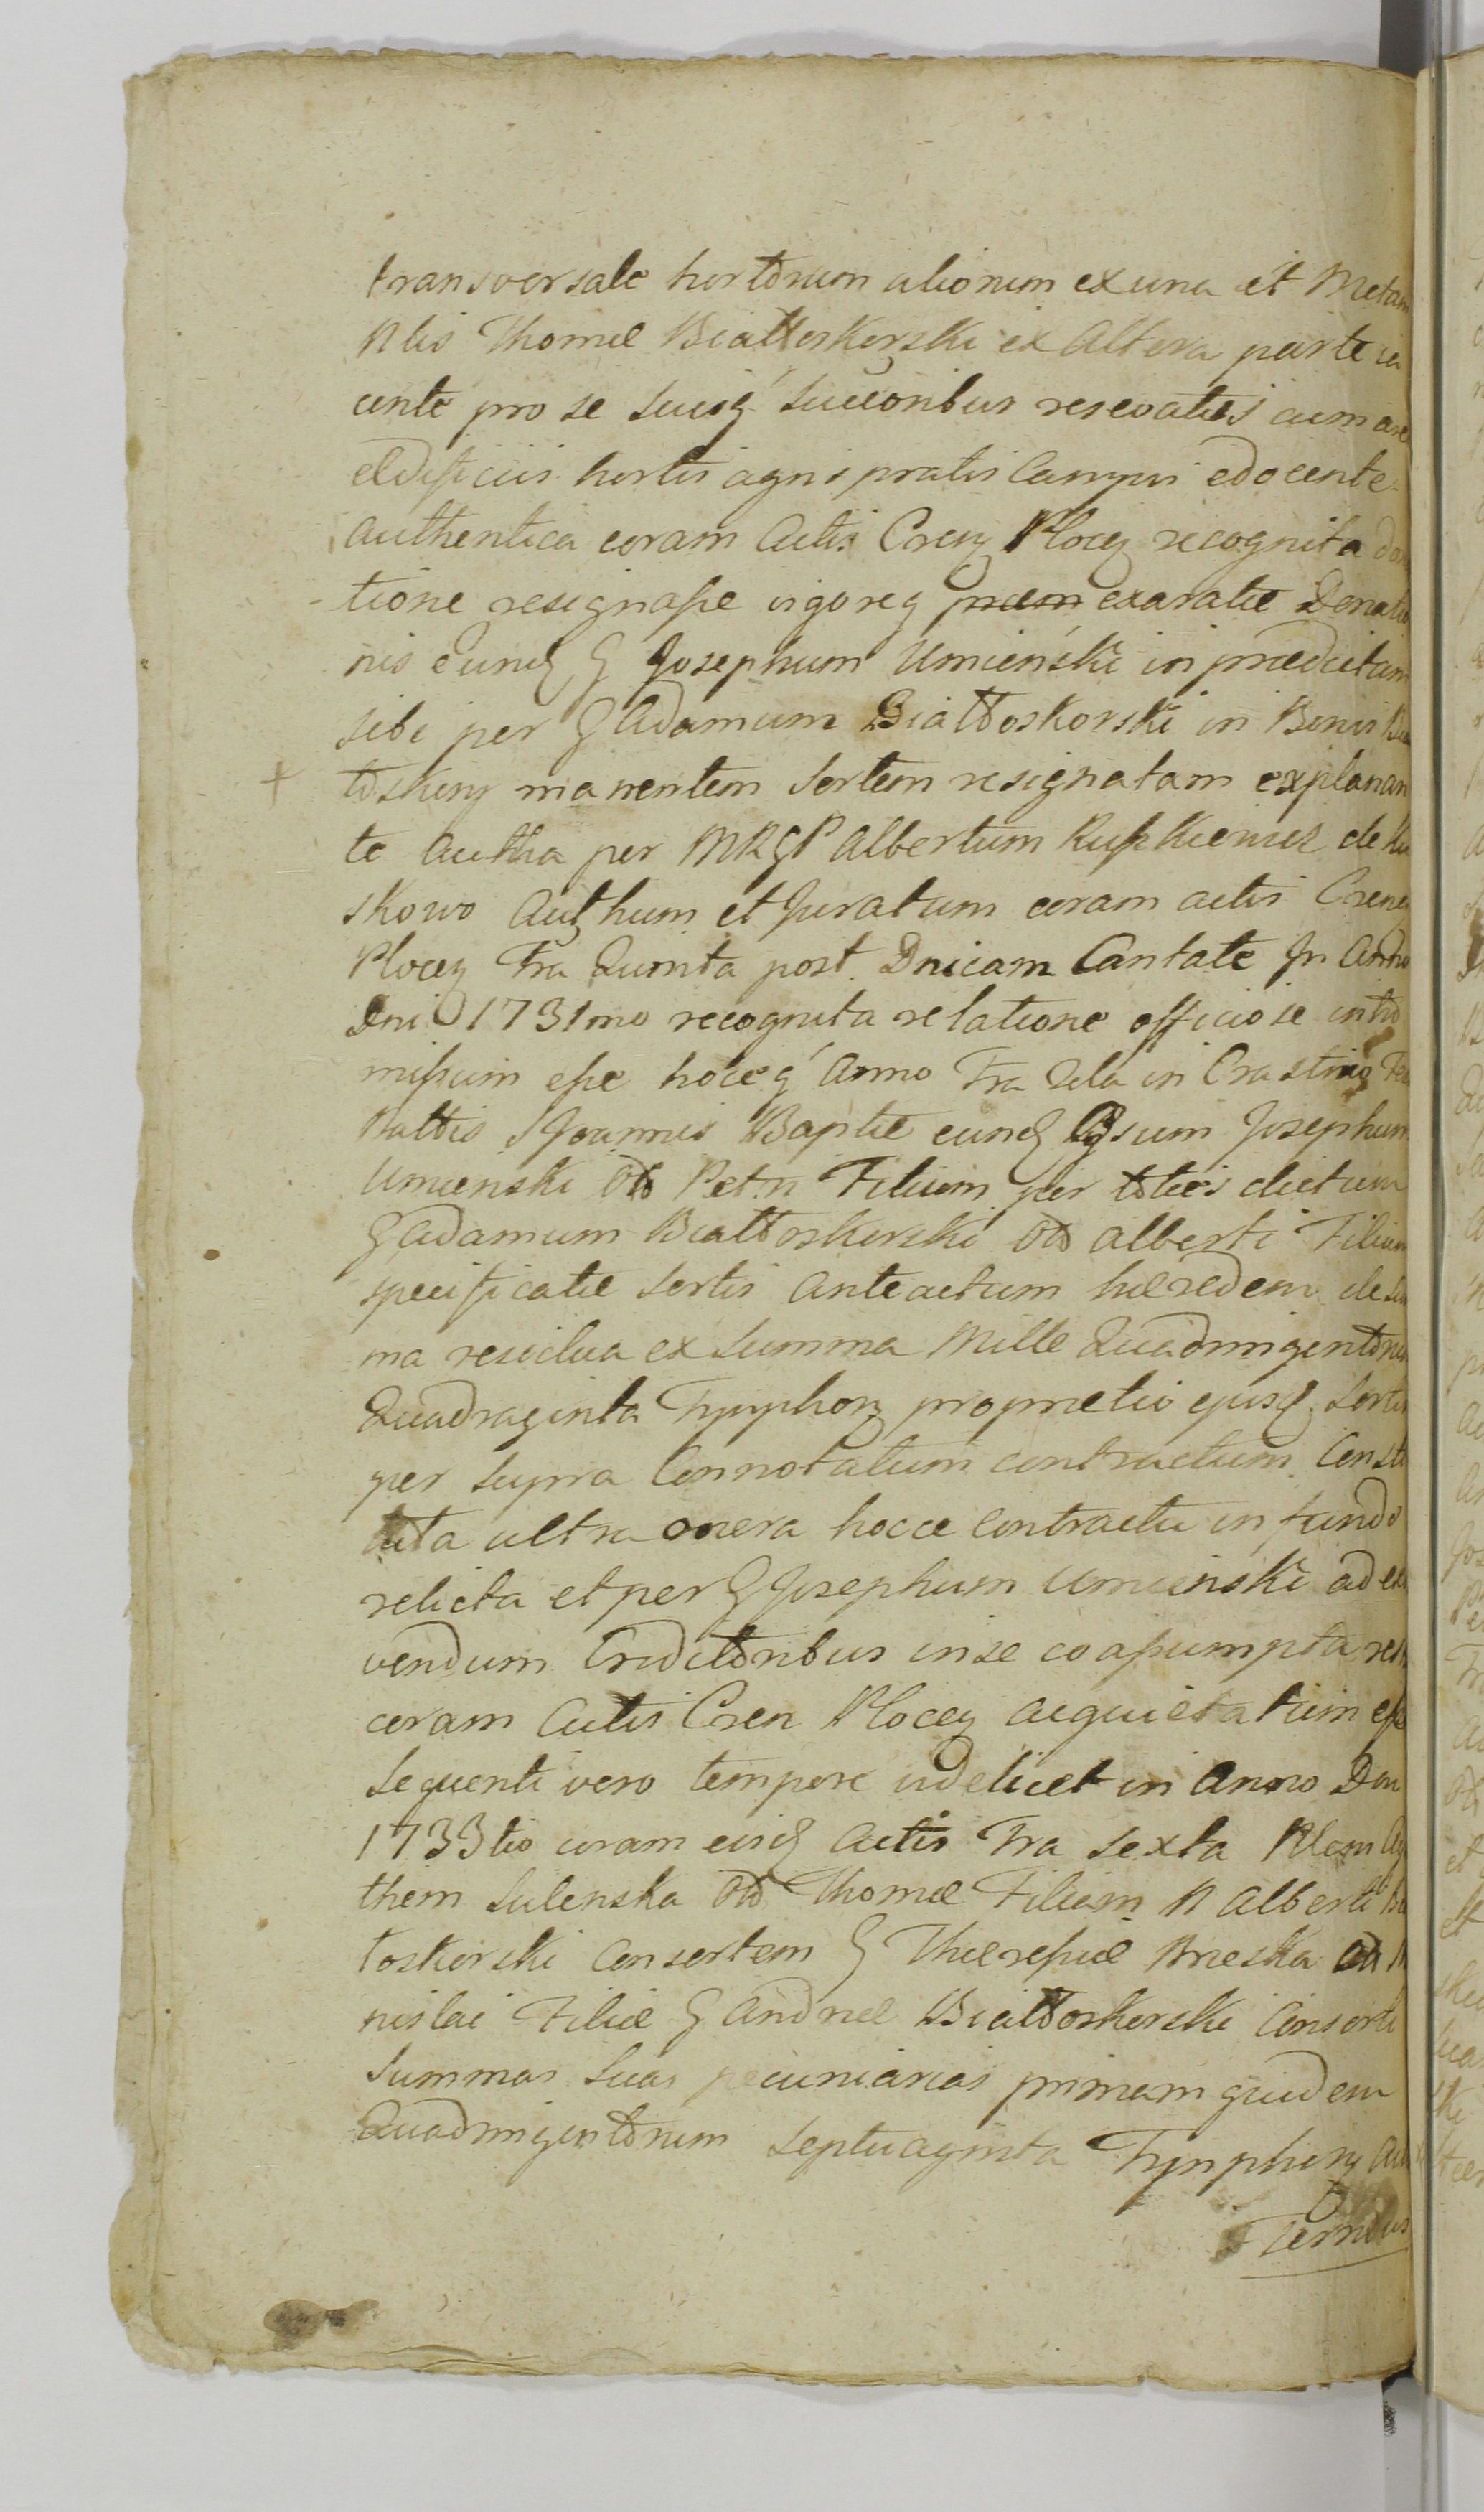 transversale hortorum aliorum ex una et Metam
Nlis Thomæ Białłoskorski ex Altera parte ia
cente pro se suisq succoribus reservatis cum are
ædificiis hortis agris pratis Campis edocente
authentica coram Actis Cren Plocen recognita do
tione resignasse vigoreq exaratæ Donatio
nis eund G Josephum Umieński in prædictam
sibi per G Adamum Białłoskorski in Bonis Bia
toskory manentem sortem resignatam explanan
te Autha per MRGP Albertum Rupkiewicz de
skowo Authum et Juratum coram actis Crenen
Plocen Fra Quinta post Dnicam Cantate In Anno
Dni 1731mo recognita relatione officiose intro
missum esse hoceq Anno Fra 2da in Crastino Fes
Nattis S Joannis Baptæ eund Gsum Josephum
Umienski Otd Petri Filium per toties dictum
G Adamum Białłoskorski Otd Alberti Filium
specificatæ sortis anteactum hæredem de sum
ma residua ex summa Mille Quadringentorum
Quadraginta Tynphon propretio ejusq sortis
per supra Connotatum contractum Consti
tuta ultra onera hocce contractu in fundo
relicta et per G Josephum Umieński ad
vendum Creditoribus in se coassumpta
coram Actis Cren Plocen acquietatum esse
Sequenti vero tempore videlicet in Anno Dni
1733tio coram eisd Actis Fra Sexta
them Sulenska Otd Thomæ Filiam N Alberti Bia
toskorski Consortem G Theresiæ Mreska Otd
nislai Filiæ G Andreæ Białłoskorski Consorti
Summas suas pecuniarias primam quidem
Quadringentorum Septuaginta Tynphon